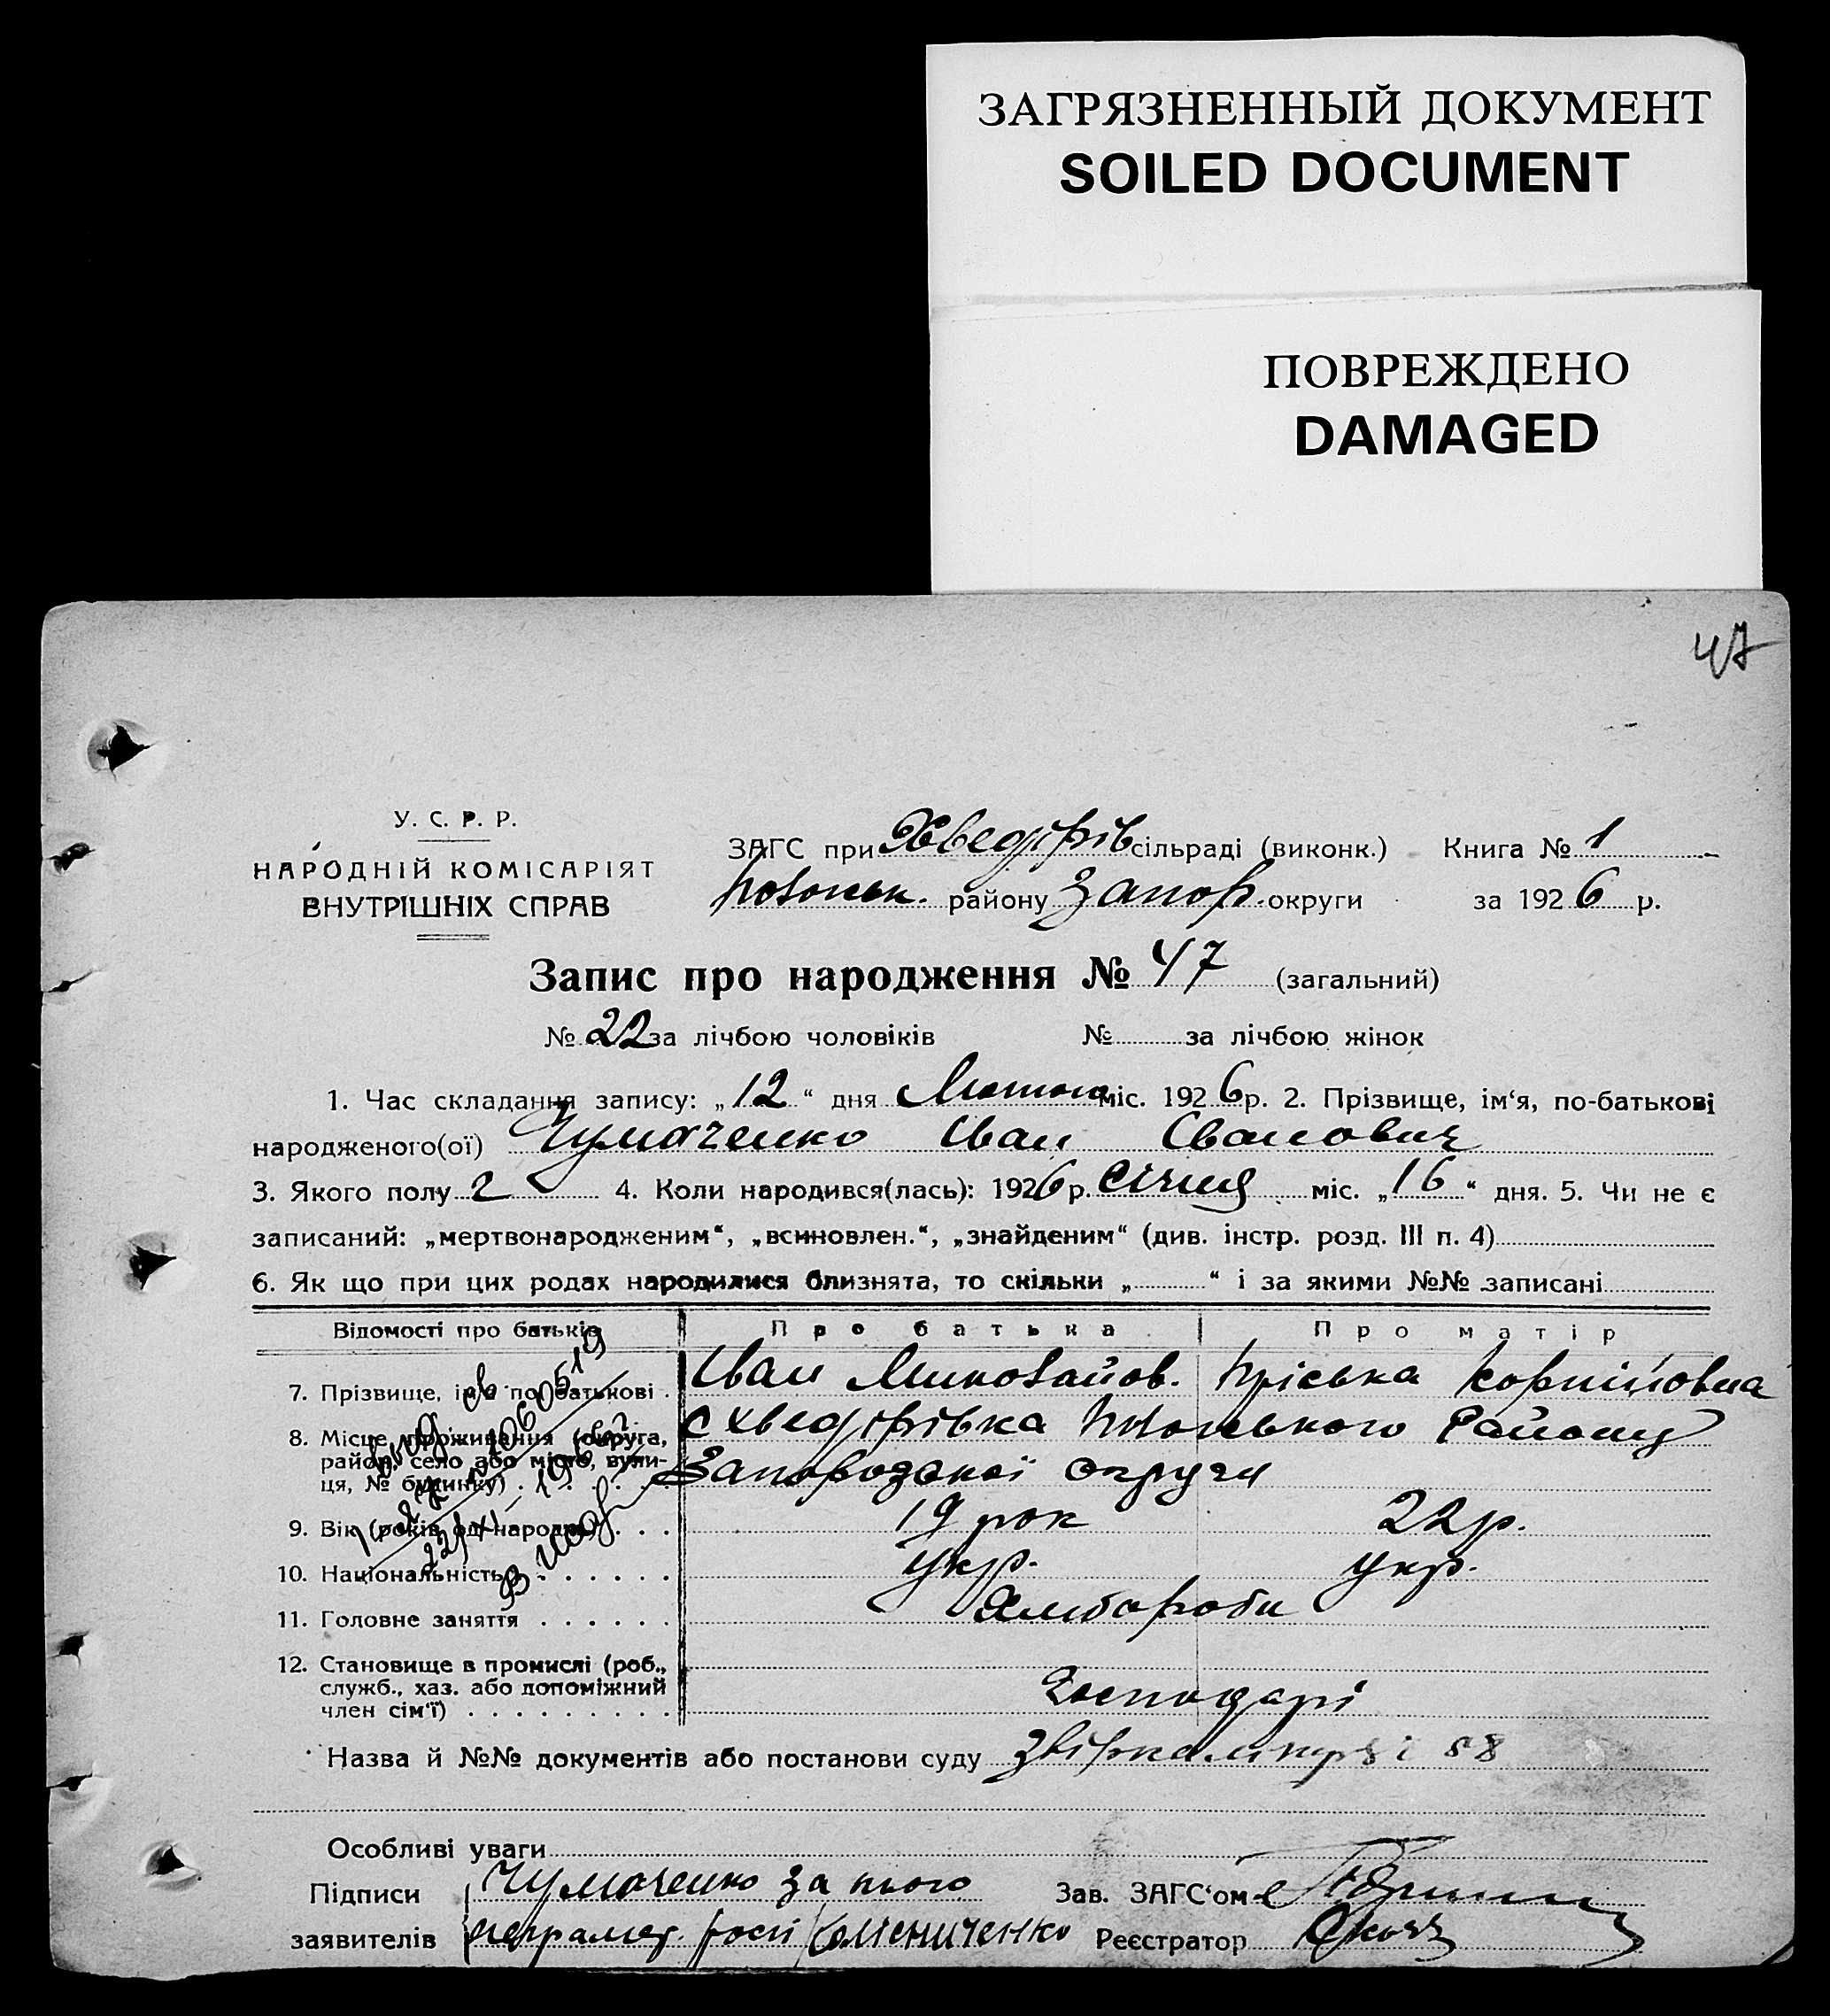 ЗАГРЯЗНЕННЫЙ ДОКУМЕНТ
SOILED DOCUMENT
ПОВРЕЖДЕНО
DAMAGED
47
У. С. Р. Р.
НАРОДНІЙ КОМІСАРІЯТ
ВНУТРІШНІХ СПРАВ
ЗАГС при Хведірів сільраді (виконк.) Книга № 1
району Запор. округи за 1926 р.
Запис про народження № 47 (загальний)
№ 22 за лічбою чоловіків № за лічбою жінок
1. Час складання запису: „12“ дня Лютого міс. 1926 р. 2. Прізвище, ім‘я, по-батькові
народженого(ої) Чумаченко Іван Іванович
3. Якого полу г 4. Коли народився(лась): 1926 р. січня міс. „16“ дня. 5. Чи не є
записаний: „мертвонародженим“, „всиновлен.“, „знайденим“ (див. інстр. розд. III п. 4)
6. Як що при цих родах народилися близнята, то скільки „ “ і за якими №№ записані
Відомості про батьків Про батька Про матір
7. Прізвище, ім‘я по батькові Іван Миколайов. Пріська Корнійовна
8. Місце проживання (округа, район, село або місто, вулиця, № будинку) с Хведірівка Району
Запорозської округи
9. Вік (років од народж.) 19 рок 22 р.
10. Національність укр. укр.
11. Головне заняття Хлібороби
12. Становище в промислі (роб., служб., хаз. або допоміжний член сім‘ї) Господарі
Назва й №№ документів або постанови суду 88
Особливі уваги
Підписи Чумаченко за нього Зав. ЗАГС‘ом
заявителів неграмот. Реєстратор